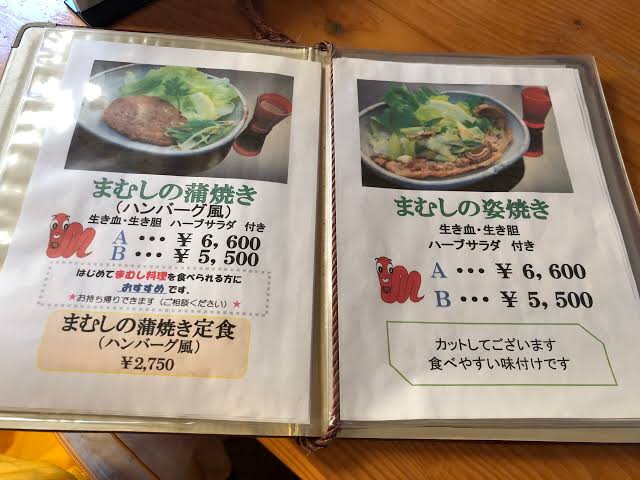 まむしの蒲焼き
（ハンバーグ風）
生き血・生き胆　ハーブサラダ　付き
A ・・・ ￥ 6,600
B ・・・ ￥ 5,500
はじめてまむし料理を食べられる方に
おすすめです．
★お持ち帰りできます（ご相談ください）★
まむしの蒲焼き定食
（ハンバーグ風）
￥2,750
まむしの姿焼き
生き血・生き胆
ハーブサラダ　付き
A ・・・ ￥ 6,600
B ・・・ ￥ 5,500
カットしてございます
食べやすい味付けです